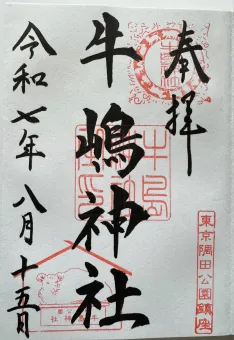 奉拝
牛嶋神社
令和七年八月十五日
東京隅田公園鎮座